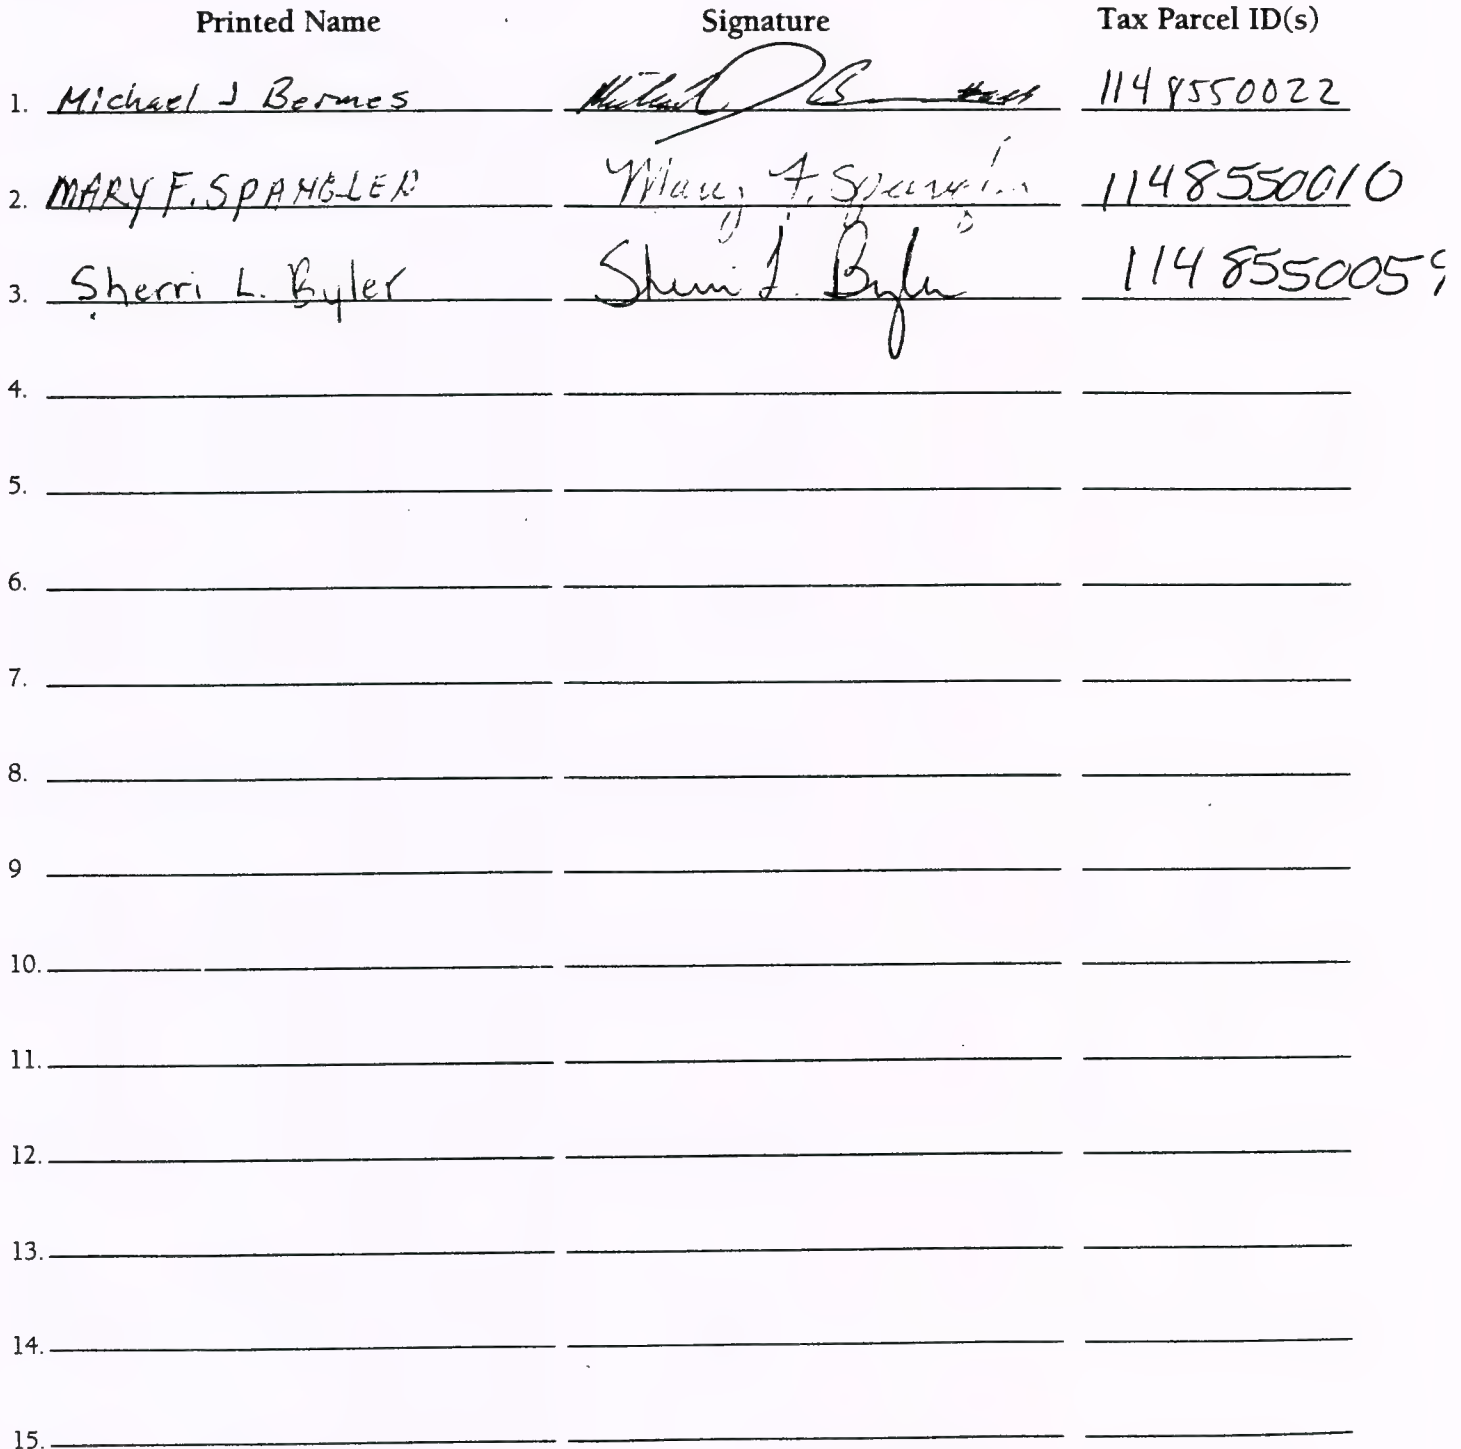 Printed Name Signature Tax Parcel ID(s)
1. Michael J Bermes Michael J B 1148550022
2. MARY F. SPANGLER Mary F. Spangler 1148550010
3. Sherri L. Byler Sherri L. Byler 1148550059
4.
5.
6.
7.
8.
9
10.
11.
12.
13.
14.
15.